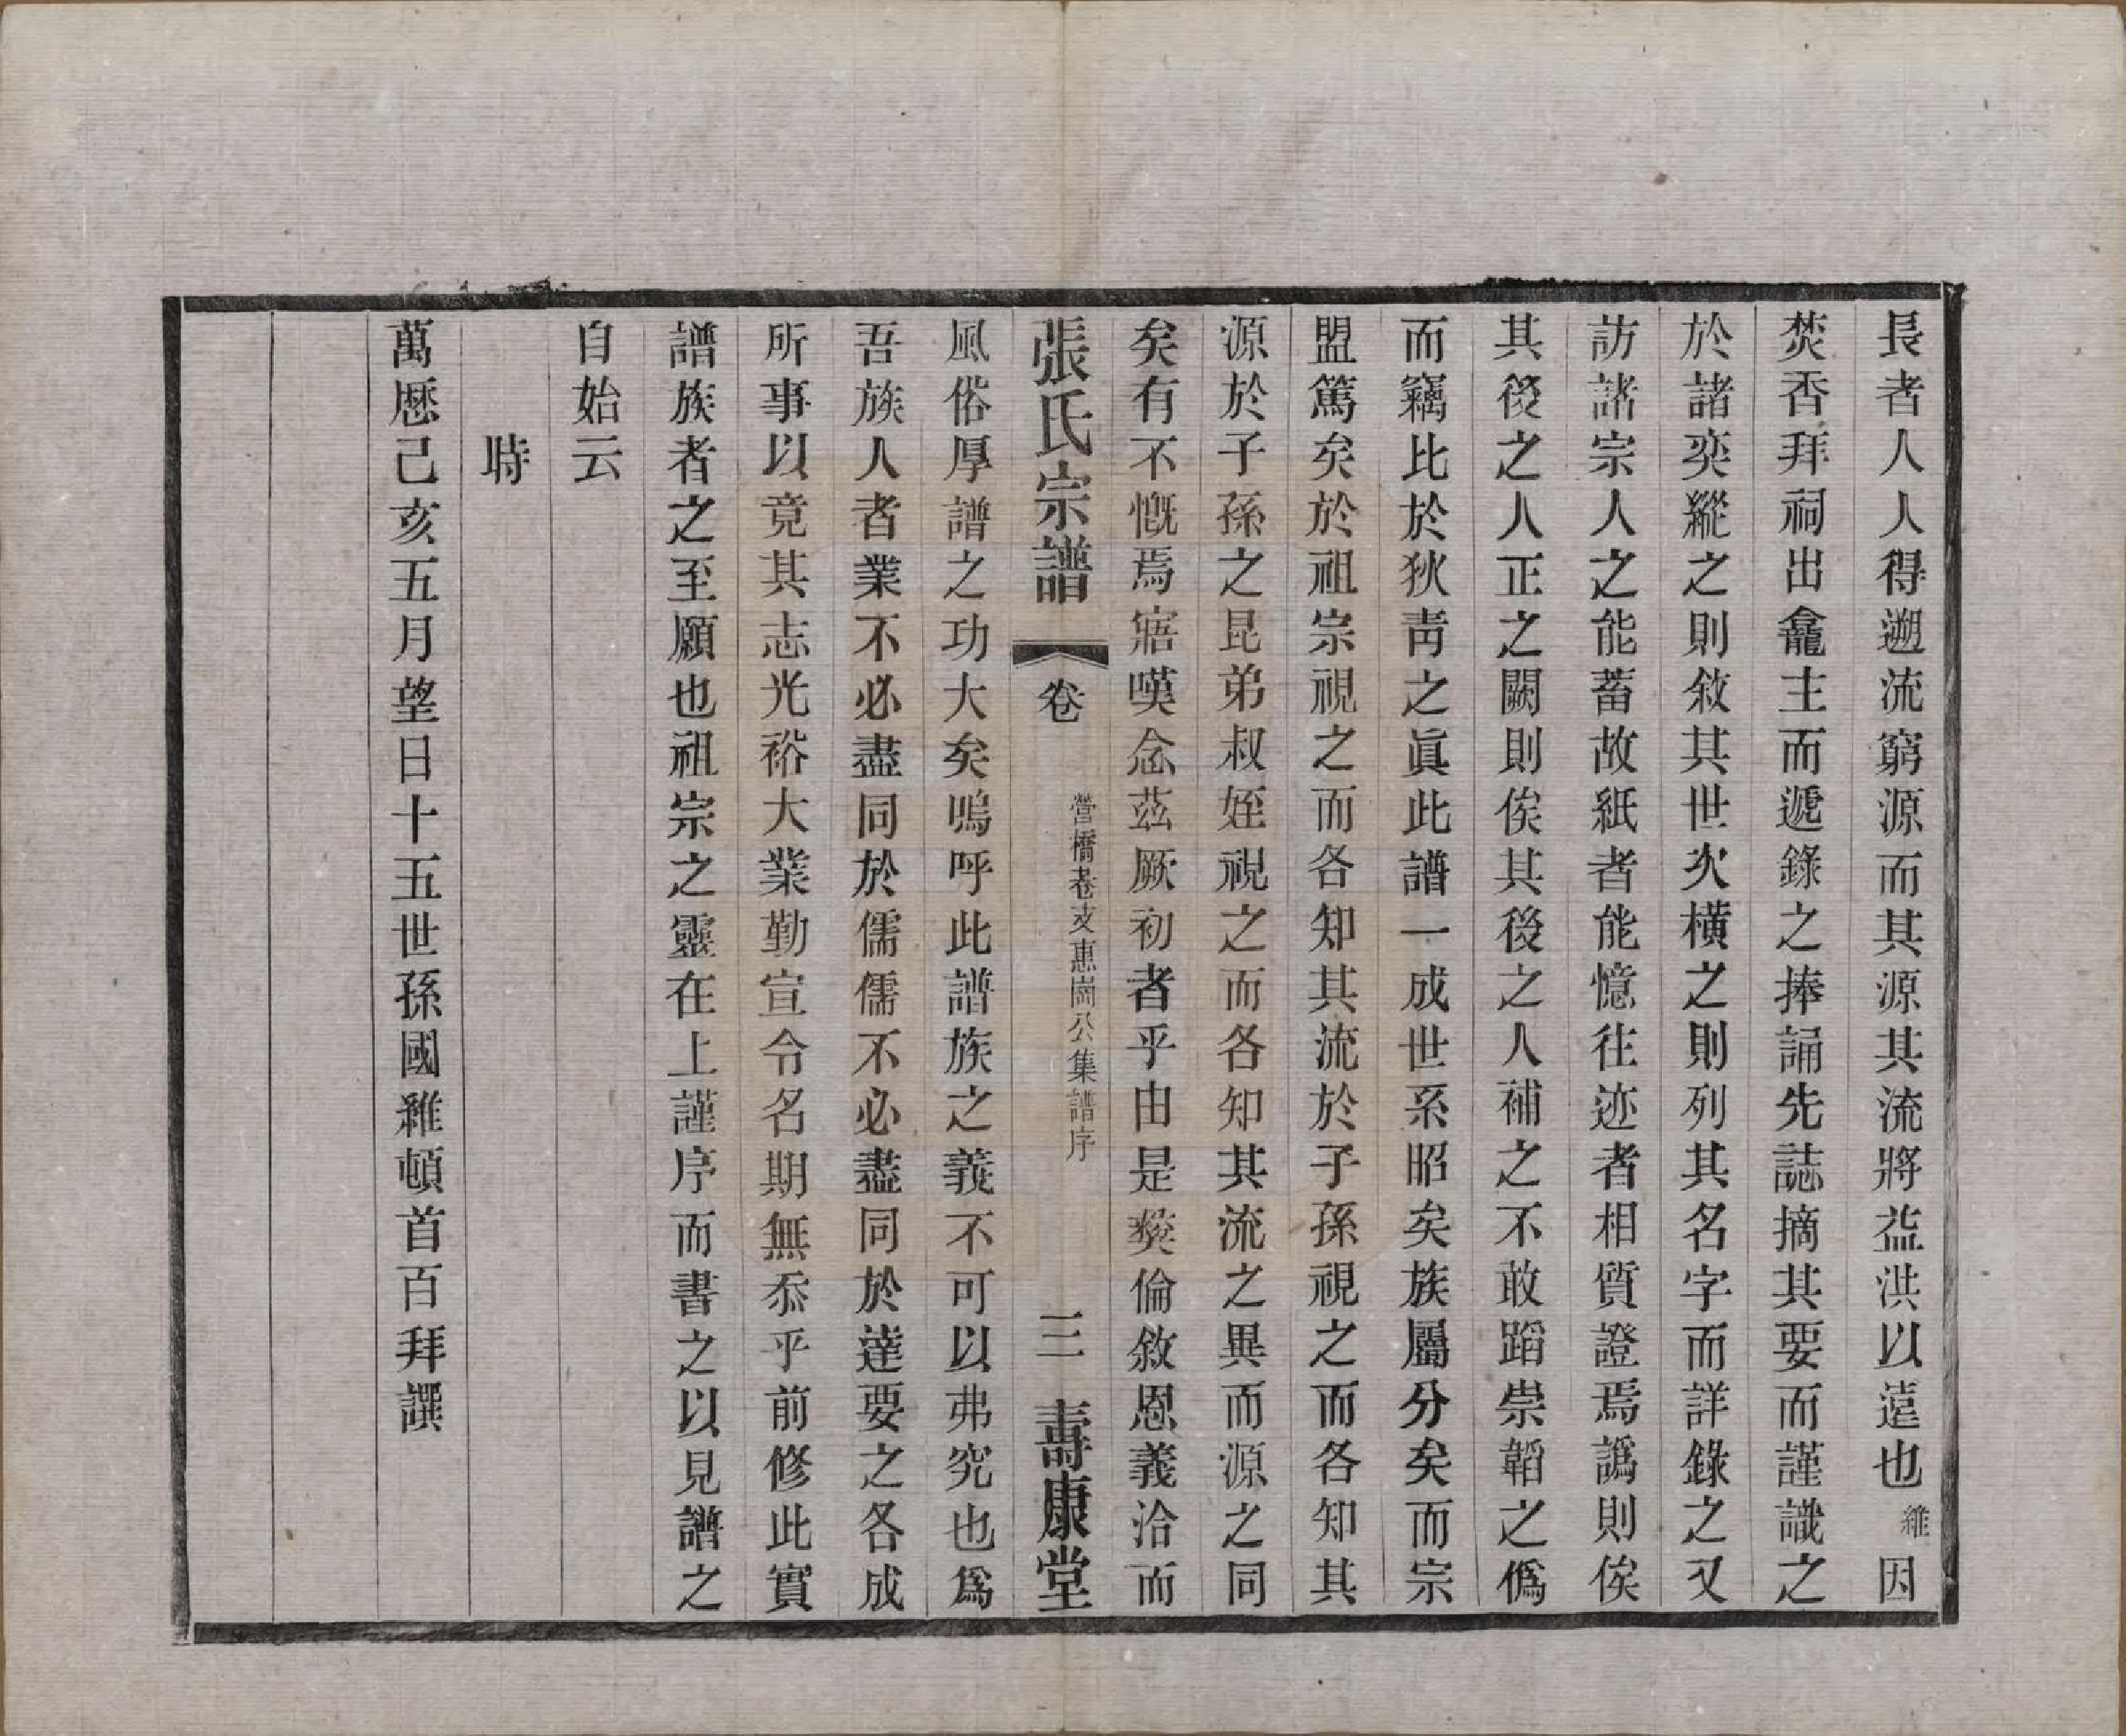 長者人人得遡流窮源而其源其流將益洪以遠也維因
焚香拜祠出龕主而遞錄之捧誦先誌摘其要而謹識之
於諸奕縱之則敘其世次橫之則列其名字而詳錄之又
訪諸宗人之能蓄故紙者能憶往迹者相質證焉譌則俟
其後之人正之闕則俟其後之人補之不敢蹈崇韜之僞
而竊比於狄靑之眞此譜一成世系昭矣族屬分矣而宗
盟篤矣於祖宗視之而各知其流於子孫視之而各知其
源於子孫之昆弟叔姪視之而各知其流之異而源之同
矣有不慨焉寤嘆念茲厥初者乎由是彛倫敘恩義洽而
張氏宗譜 卷 營橋老支惠崗公集譜序 三 壽康堂
風俗厚譜之功大矣嗚呼此譜族之義不可以弗究也爲
吾族人者業不必盡同於儒儒不必盡同於達要之各成
所事以竟其志光裕大業勤宣令名期無忝乎前修此實
譜族者之至願也祖宗之靈在上謹序而書之以見譜之
自始云
時
萬歷己亥五月望日十五世孫國維頓首百拜譔